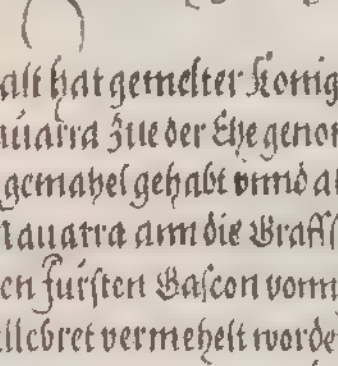 alt hat gemelter Konig
auarra Zue der Ehe genom
gemahel gehabt vnnd a
Nauarra ann die Graffs
en fursten Gascon vonn
llebret vermehelt worde